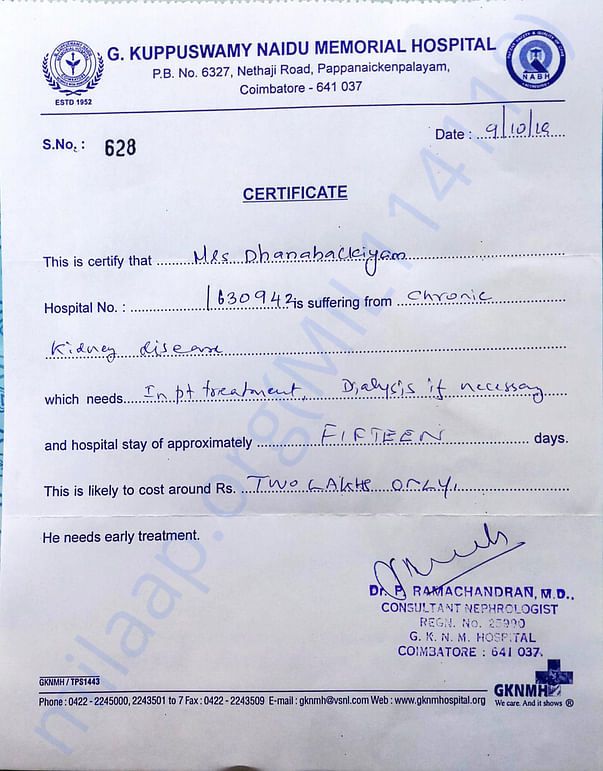 G. KUPPUSWAMY NAIDU MEMORIAL HOSPITAL
P.B. No. 6327, Nethaji Road, Pappanaickenpalayam,
Coimbatore - 641 037
ESTD 1952
NABH
S.No. : 628
Date : 9/10/19
CERTIFICATE
This is certify that Mrs Dhanabackiyam
Hospital No. : 1630942 is suffering from Chronic
Kidney disease
which needs In pt treatment, Dialysis if necessary
and hospital stay of approximately FIFTEEN days.
This is likely to cost around Rs. TWO LAKHS ONLY.
He needs early treatment.
Dr. P. RAMACHANDRAN, M.D.,
CONSULTANT NEPHROLOGIST
REGN. No. 25990
G. K. N. M. HOSPITAL
COIMBATORE : 641 037.
GKNMH / TPS1443
GKNMH
Phone : 0422 - 2245000, 2243501 to 7 Fax : 0422 - 2243509 E-mail : gknmh@vsnl.com Web : www.gknmhospital.org
We care. And it shows ®
milaap.org(MIL114118)